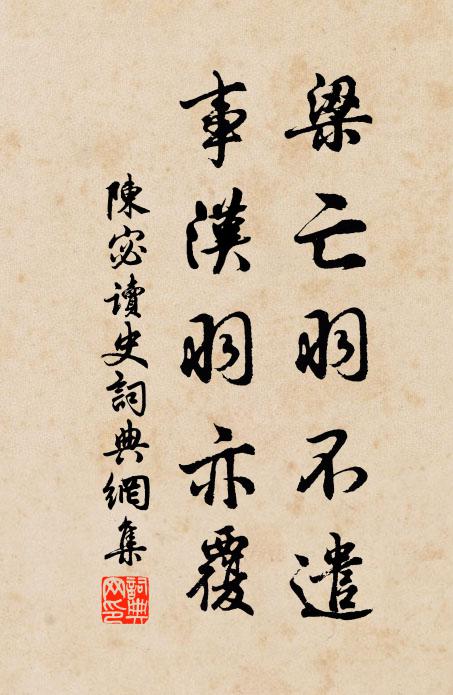 梁亡羽不遣
事漢羽亦覆
陳宓讀史詞典網集
詞典
网印